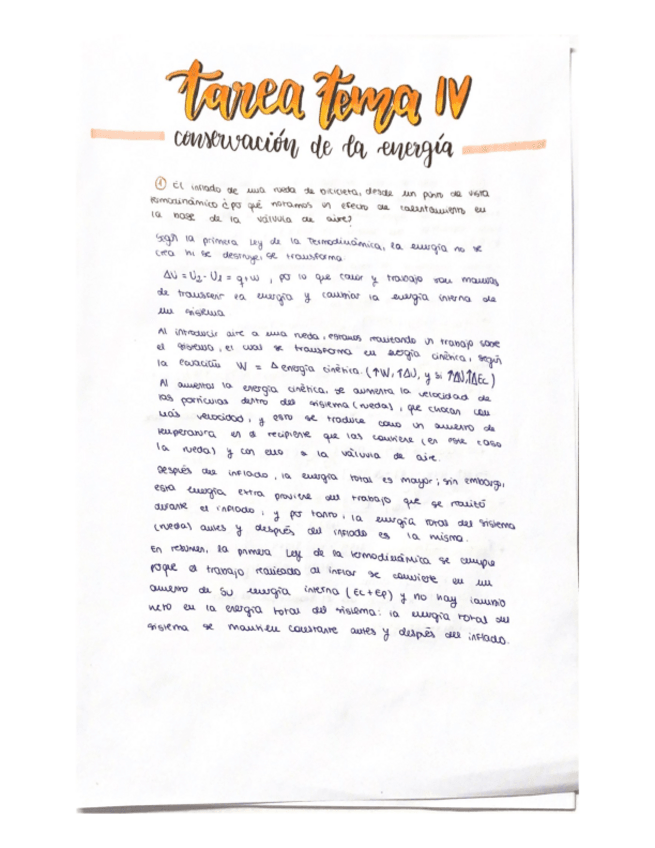 tarea tema IV
conservación de la energía
① El inflado de una rueda de bicicleta, desde un punto de vista
termodinámico ¿por qué notamos un efecto de calentamiento en
la base de la válvula de aire?
Según la primera Ley de la Termodinámica, la energía no se
crea ni se destruye, se transforma:
ΔU = U₂ - U₁ = q + w , por lo que calor y trabajo son maneras
de transferir la energía y cambiar la energía interna de
un sistema
Al introducir aire a una rueda, estamos realizando un trabajo sobre
el sistema, el cual se transforma en energía cinética, según
la ecuación W = Δ energía cinética. (↑W, ↑ΔU, y si ↑ΔU, ↑ΔEc)
Al aumentar la energía cinética, se aumenta la velocidad de
las partículas dentro del sistema (rueda), que chocan con
más velocidad, y esto se traduce como un aumento de
temperatura en el recipiente que las contiene (en este caso
la rueda) y con ello a la válvula de aire.
Después del inflado, la energía total es mayor; sin embargo,
esta energía extra proviene del trabajo que se realizó
durante el inflado, y por tanto, la energía total del sistema
(rueda) antes y después del inflado es la misma.
En resumen, la primera Ley de la termodinámica se cumple
porque el trabajo realizado al inflar se convierte en un
aumento de su energía interna (Ec+Ep) y no hay cambio
neto en la energía total del sistema: la energía total del
sistema se mantiene constante antes y después del inflado.